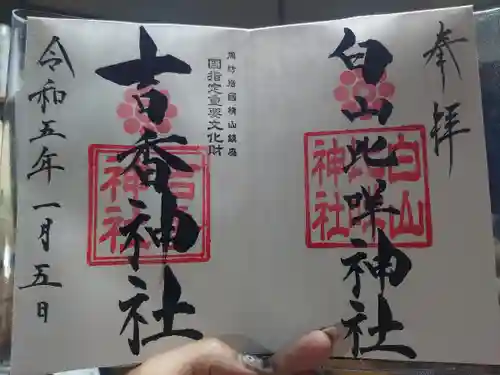 奉拝
白山比咩神社
白山
比咩
神社
周防岩國横山鎮座
国指定重要文化財
吉香神社
吉香
神社
令和五年一月五日